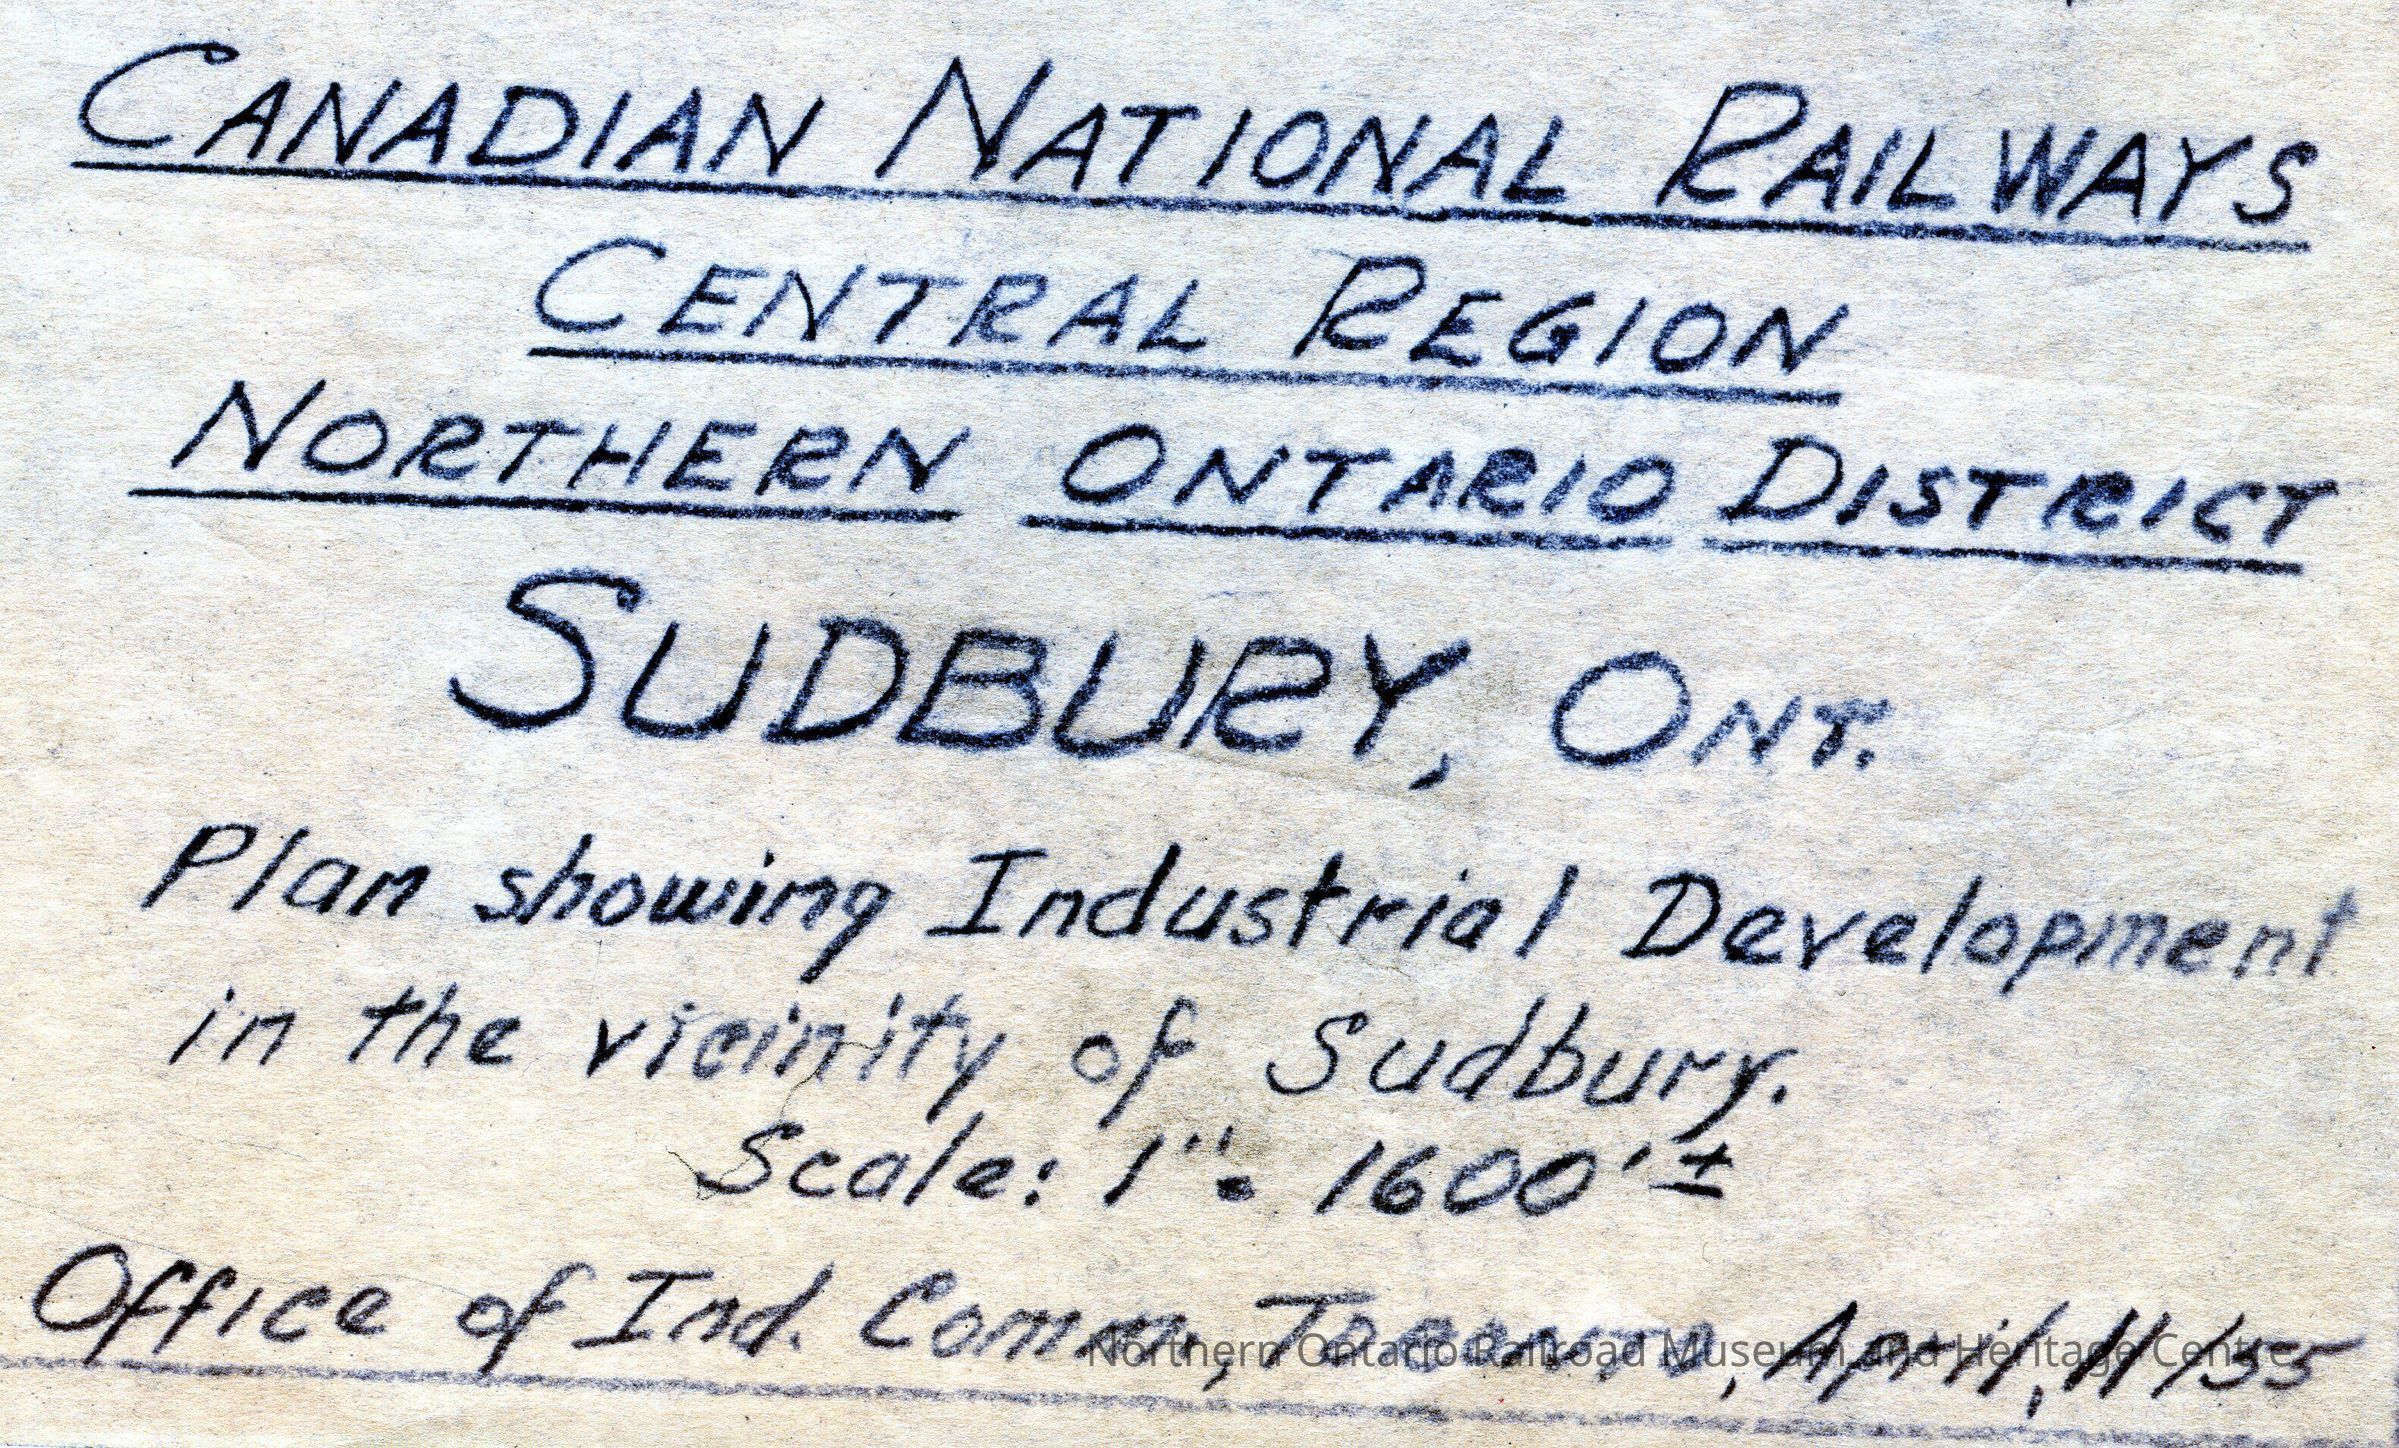 CANADIAN NATIONAL RAILWAYS
CENTRAL REGION
NORTHERN ONTARIO DISTRICT
SUDBURY, ONT.
Plan showing Industrial Development
in the vicinity of Sudbury.
Scale: 1" = 1600' ±
Office of Ind. Comm., Toronto, April, 11/55
Northern Ontario Railroad Museum and Heritage Centre